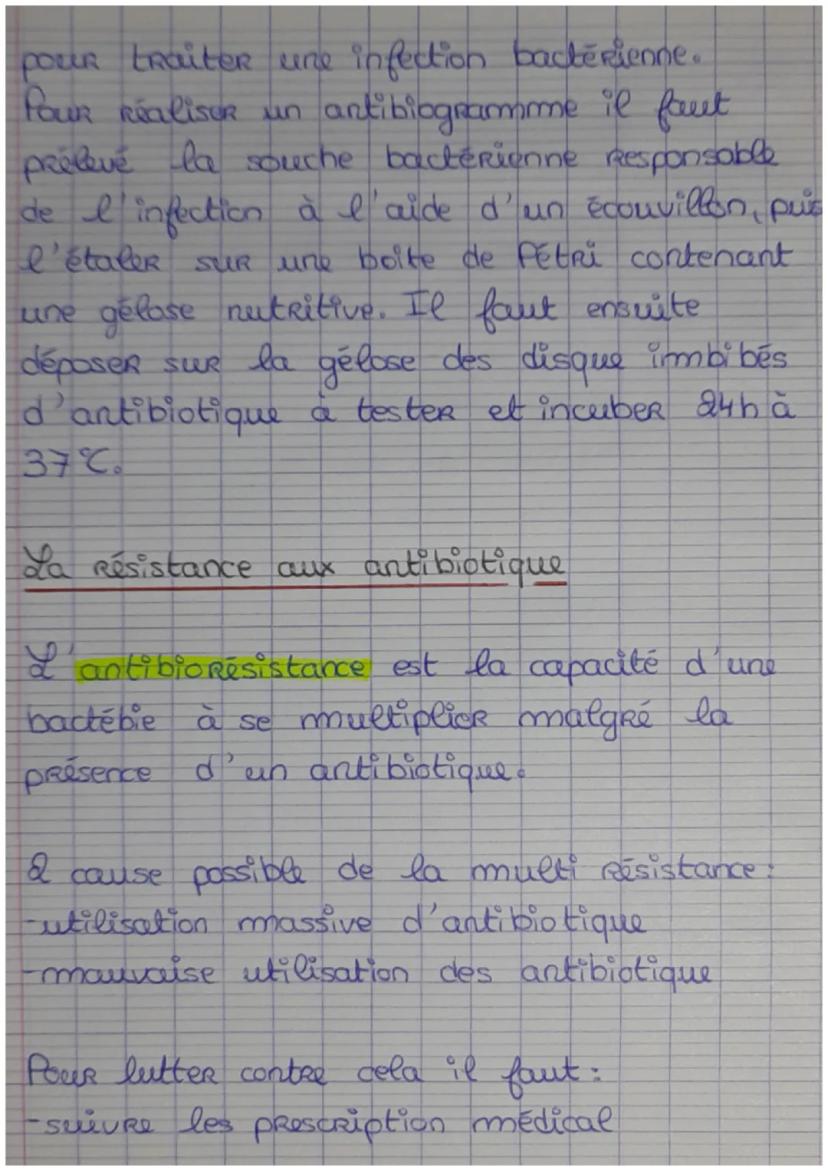 pour traiter une infection bactérienne.
Pour réaliser un antibiogramme il faut
prélevé la souche bactérienne responsable
de l'infection à l'aide d'un écouvillon, puis
l'étaler sur une boîte de Pétri contenant
une gélose nutritive. Il faut ensuite
déposer sur la gélose des disque imbibés
d'antibiotique à tester et incuber 24h à
37°C.
La résistance aux antibiotique
L'antibiorésistance est la capacité d'une
bactébie à se multiplier malgré la
présence d'un antibiotique.
2 cause possible de la multi résistance :
-utilisation massive d'antibiotique
-mauvaise utilisation des antibiotique
Pour lutter contre cela il faut :
-suivre les prescription médical